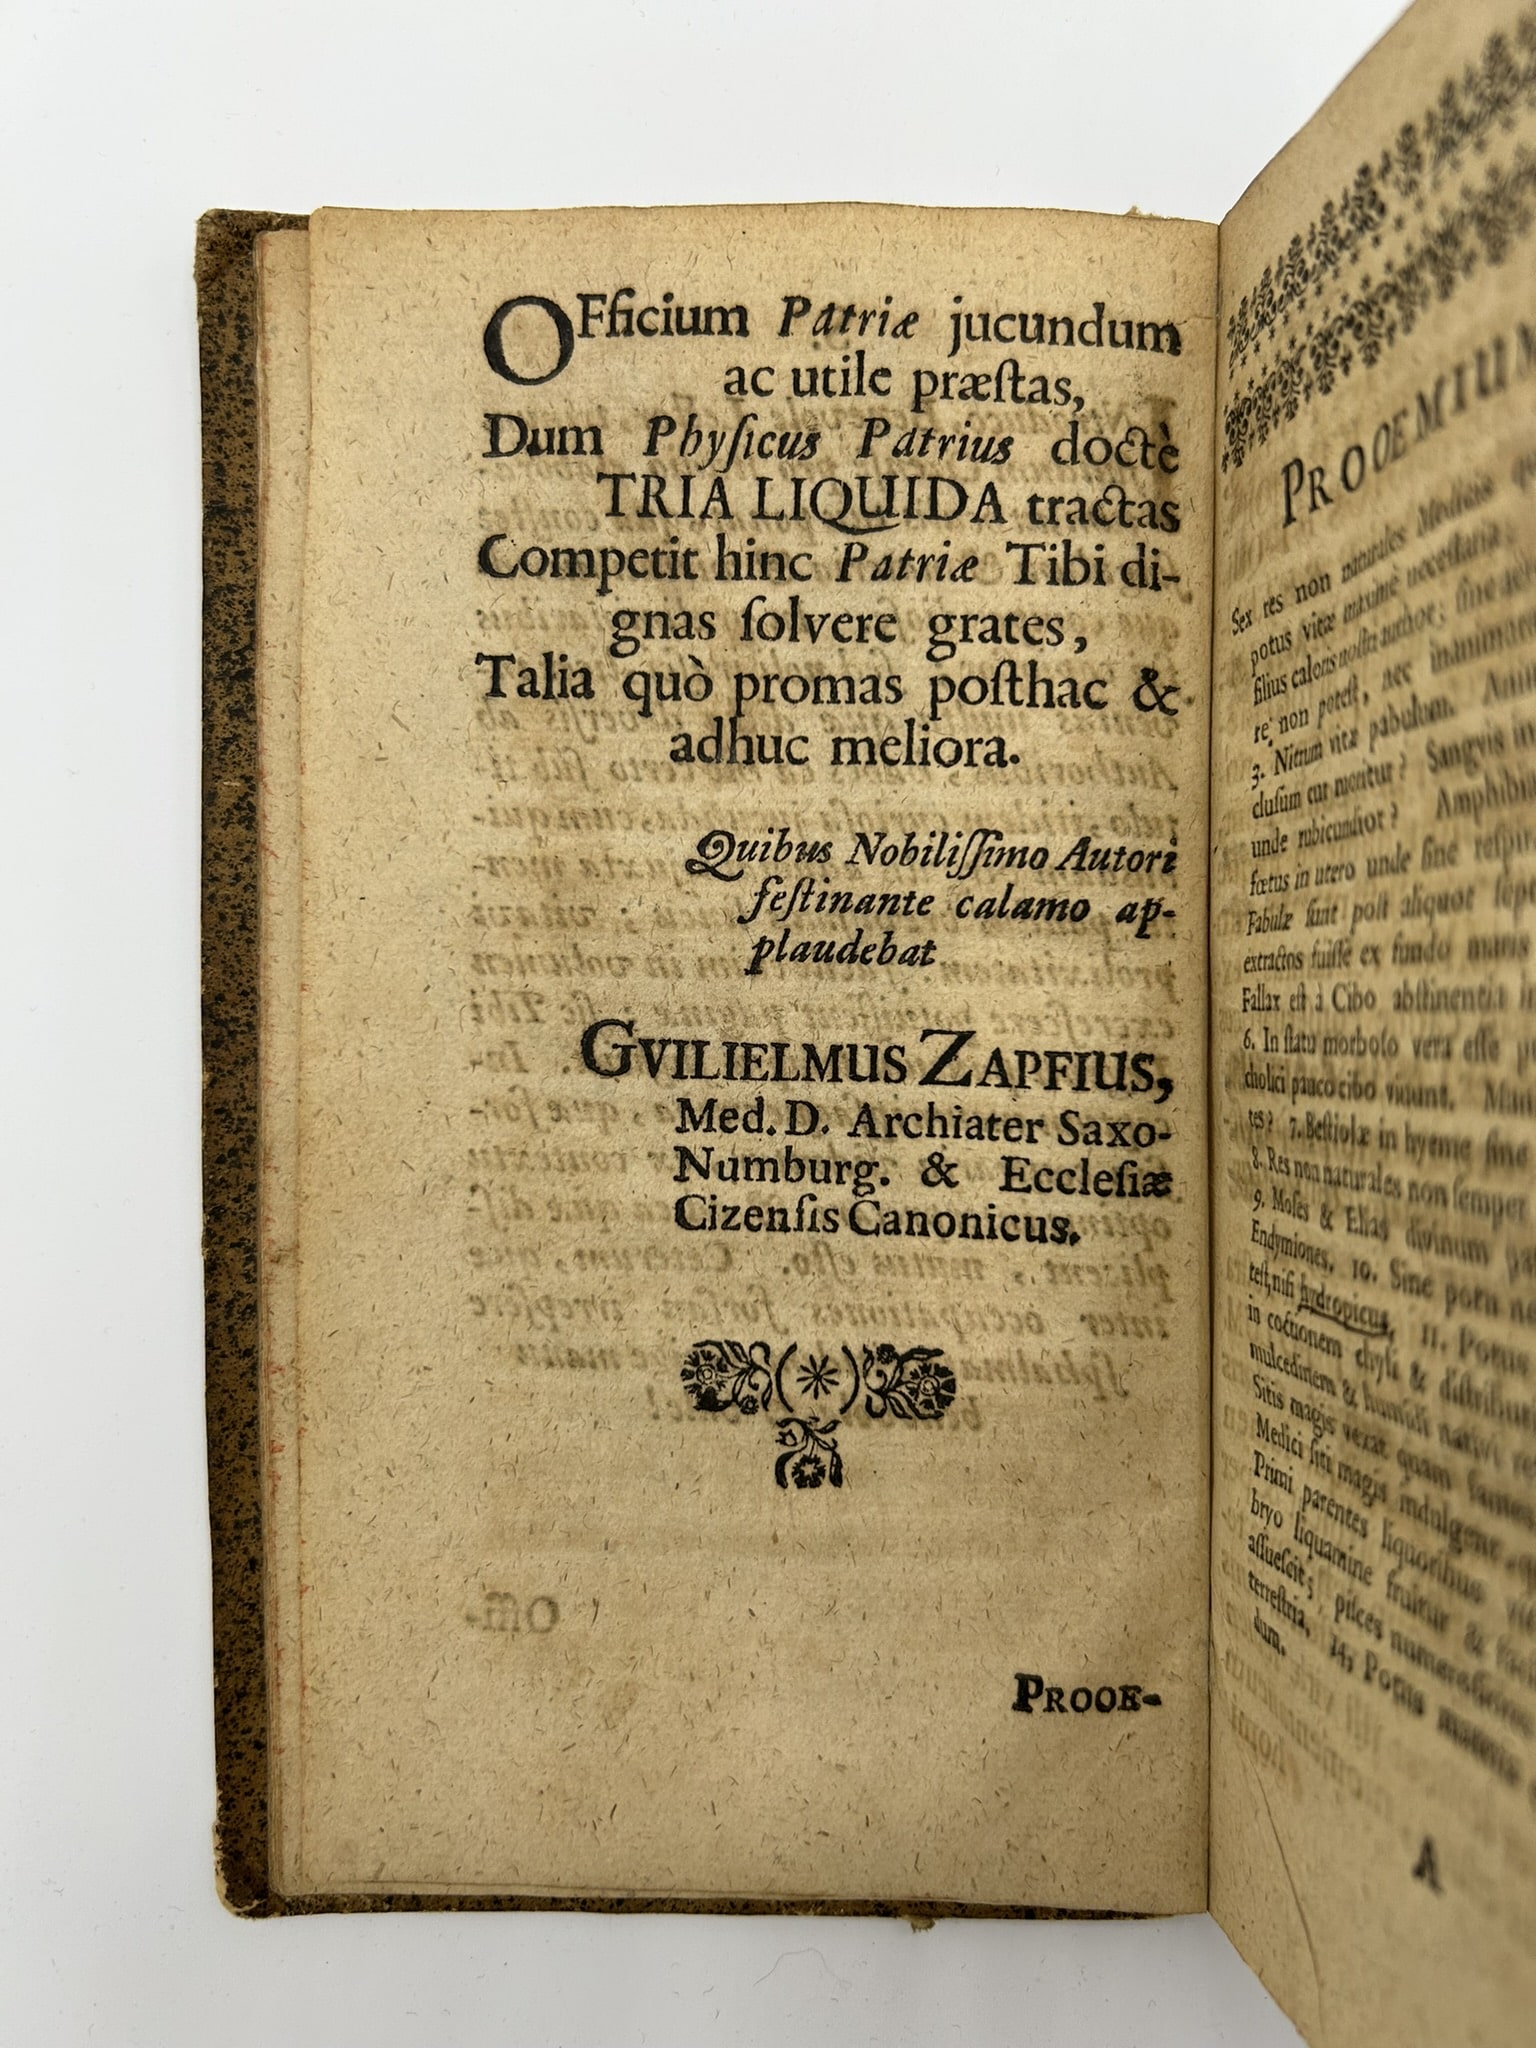 OFficium Patriæ jucundum
ac utile præſtas,
Dum Phyſicus Patrius doctè
TRIA LIQUIDA tractas
Competit hinc Patriæ Tibi di-
gnas ſolvere grates,
Talia quò promas poſthac &
adhuc meliora.
Quibus Nobiliſſimo Autori
feſtinante calamo ap-
plaudebat
GVILIELMUS ZAPFIUS,
Med. D. Archiater Saxo-
Numburg. & Eccleſiæ
Cizenſis Canonicus.
(*)
PROOE-
PROOEMIUM
Sex res non naturales Medicis
potus vitæ maximè neceſſaria;
filius caloris noſtri author; ſine
re non poteſt, nec inanimata
3. Nitrum vitæ pabulum.
cluſum cur moritur? Sangvis in
unde rubicundior? Amphibia
fœtus in utero unde ſine reſpi
Fabulæ ſunt poſt aliquot
extractos fuiſſe ex fundo maris
Fallax eſt à Cibo abſtinentia
6. In ſtatu morboſo vera eſſe
cholici pauco cibo vivunt.
tes? 7. Beſtiolæ in hyeme ſine
8. Res non naturales non ſemper
9. Moſes & Elias divinum
Endymiones. 10. Sine potu
teſt, niſi hydropicus. 11. Potus
in coctionem chyli & diſtribut
mulcedinem & humidi nativi
Sitis magis vexat quam fames
Medici ſiti magis indulgent
Primi parentes liquoribus
bryo liquamine fruitur &
aſſueſcit; piſces numeroſiores
terreſtria. 14. Potus
dum.
A